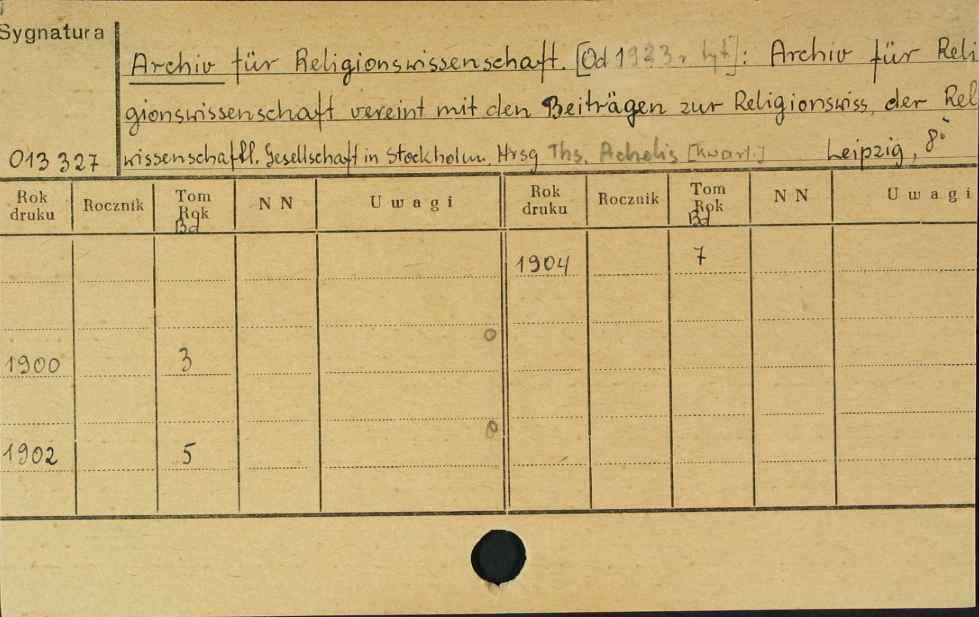 Sygnatura
Archiv für Religionswissenschaft. [Od 1923 r. tyt]: Archiv für Reli
gionswissenschaft vereint mit den Beiträgen zur Religionswiss. der Rel
013 327 wissenschaftl. Gesellschaft in Stockholm. Hrsg Ths. Achelis [Kwart.] Leipzig, 8°
Rok druku Rocznik Tom Rok Bd N N Uwagi Rok druku Rocznik Tom Rok Bd N N Uwagi
1904 7
1900 3
1902 5